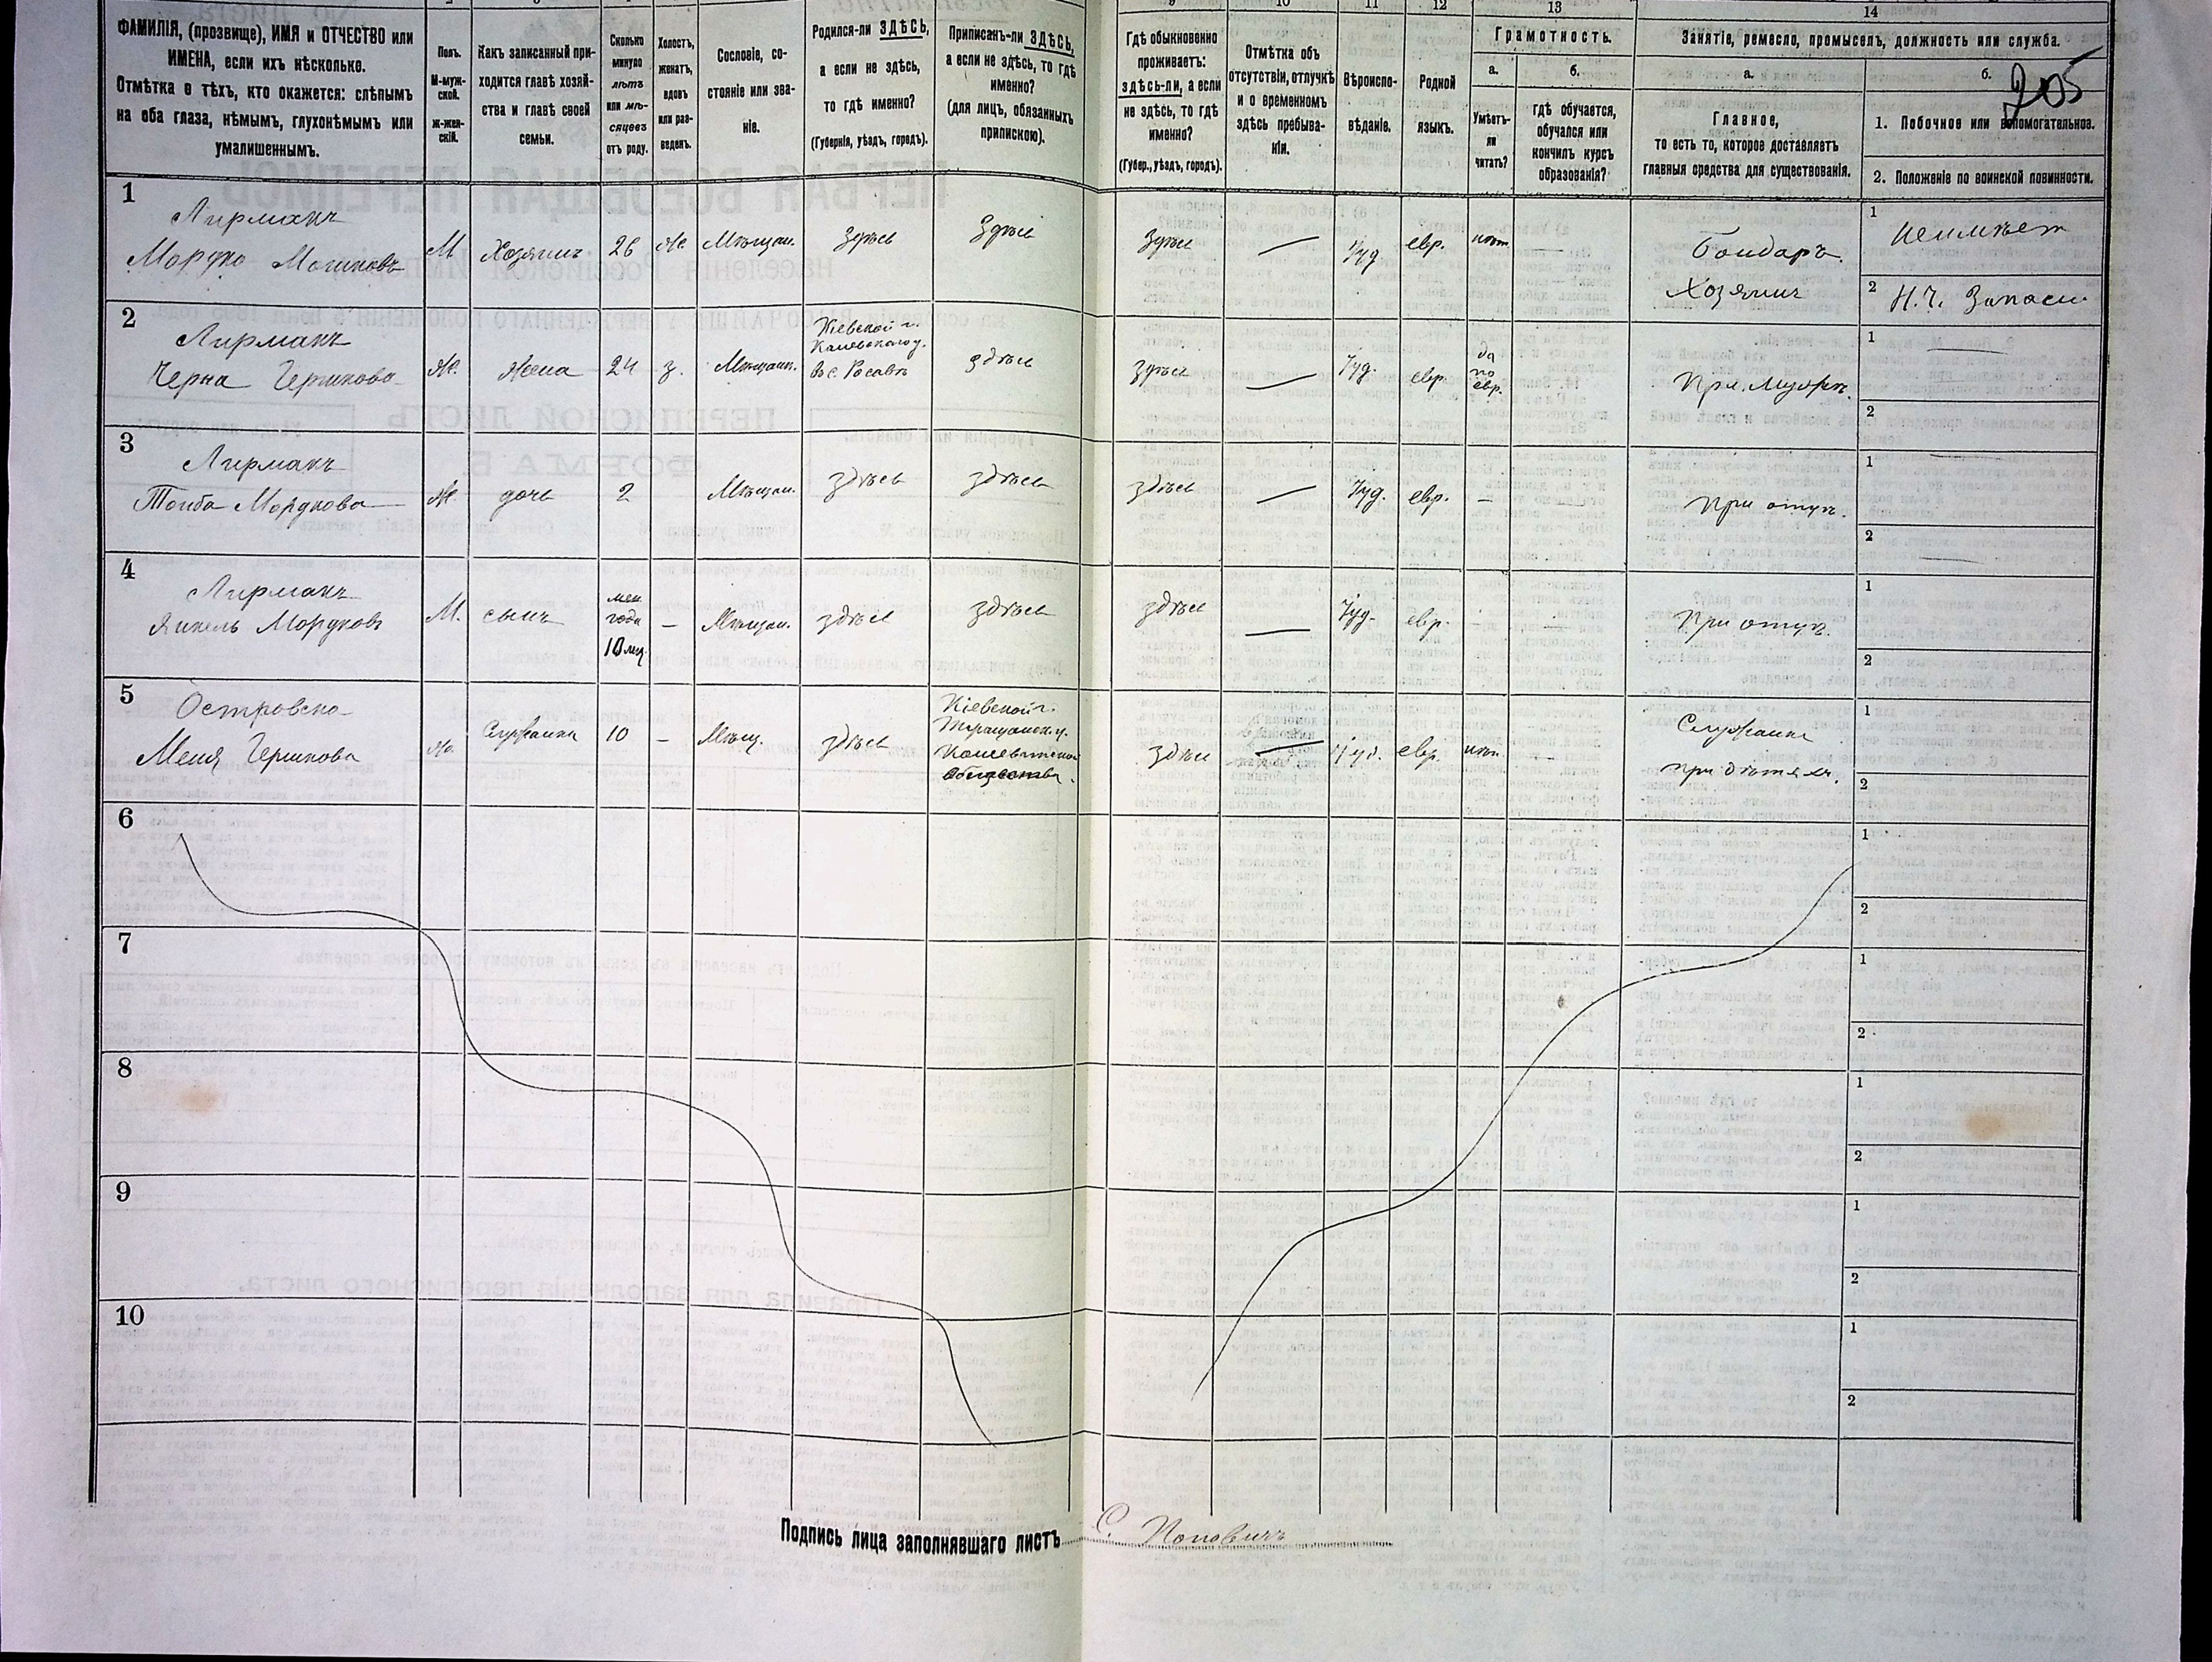 9 10 11 12 13 14
ФАМИЛІЯ, (прозвище), ИМЯ и ОТЧЕСТВО или
ИМЕНА, если ихъ нѣсколько.
Отмѣтка о тѣхъ, кто окажется: слѣпымъ
на оба глаза, нѣмымъ, глухонѣмымъ или
умалишеннымъ.
Полъ.
М-муж-
ской.
ж-жен-
скій.
Какъ записанный при-
ходится главѣ хозяй-
ства и главѣ своей
семьи.
Сколько
минуло
лѣтъ
или мѣ-
сяцевъ
отъ роду.
Холостъ,
женатъ,
вдовъ
или раз-
веденъ.
Сословіе, со-
стояніе или зва-
ніе.
Родился-ли ЗДѢСЬ,
а если не здѣсь,
то гдѣ именно?
(Губернія, уѣздъ, городъ).
Приписанъ-ли ЗДѢСЬ,
а если не здѣсь, то гдѣ
именно?
(для лицъ, обязанныхъ
припискою).
Гдѣ обыкновенно
проживаетъ:
здѣсь-ли, а если
не здѣсь, то гдѣ
именно?
(Губер., уѣздъ, городъ).
Отмѣтка объ
отсутствіи, отлучкѣ
и о временномъ
здѣсь пребыва-
ніи.
Вѣроиспо-
вѣданіе.
Родной
языкъ.
Грамотность.
а.
Умѣетъ-
ли
читать?
б.
гдѣ обучается,
обучался или
кончилъ курсъ
образованія?
Занятіе, ремесло, промыселъ, должность или служба.
а.
Главное,
то есть то, которое доставляетъ
главныя средства для существованія.
б.
205
1. Побочное или вспомогательное.
2. Положеніе по воинской повинности.
1
Лирманъ
Мордко
М
Хозяинъ
26
Ж.
Мѣщан.
Здѣсь
Здѣсь
Здѣсь
—
Іуд
евр.
нѣт.
—
Бондаръ.
Хозяинъ
1 неимѣет
2 Н.Ч. Запаса
2
Лирманъ
Черна Гершкова
Ж.
Жена
24
з.
Мѣщан.
Кіевской г.
Каневскаго у.
в с. Росавѣ
здѣсь
здѣсь
—
Іуд.
евр.
да
по
евр.
При мужѣ.
1
2
3
Лирманъ
Тойба Мордкова
Ж.
дочь
2
Мѣщан.
здѣсь
здѣсь
здѣсь
—
Іуд.
евр.
—
при отцѣ.
1
2
4
Лирманъ
Янкель Мордковъ
М.
сынъ
мен
года
10 мц.
—
Мѣщан.
здѣсь
здѣсь
здѣсь
—
Іуд.
евр.
-
—
При отцѣ.
1
2
5
Островска
Меня Гершкова
ж.
Служанка
10
—
Мѣщ.
здѣсь
Кіевской г.
Таращанск. у.
Кошеватской
общества.
здѣсь
—
Іуд.
евр.
нѣт.
—
Служанка
при дѣтяхъ.
1
2
6
1
2
7
1
2
8
1
2
9
1
2
10
1
2
Подпись лица заполнявшаго листъ С. Поповичъ